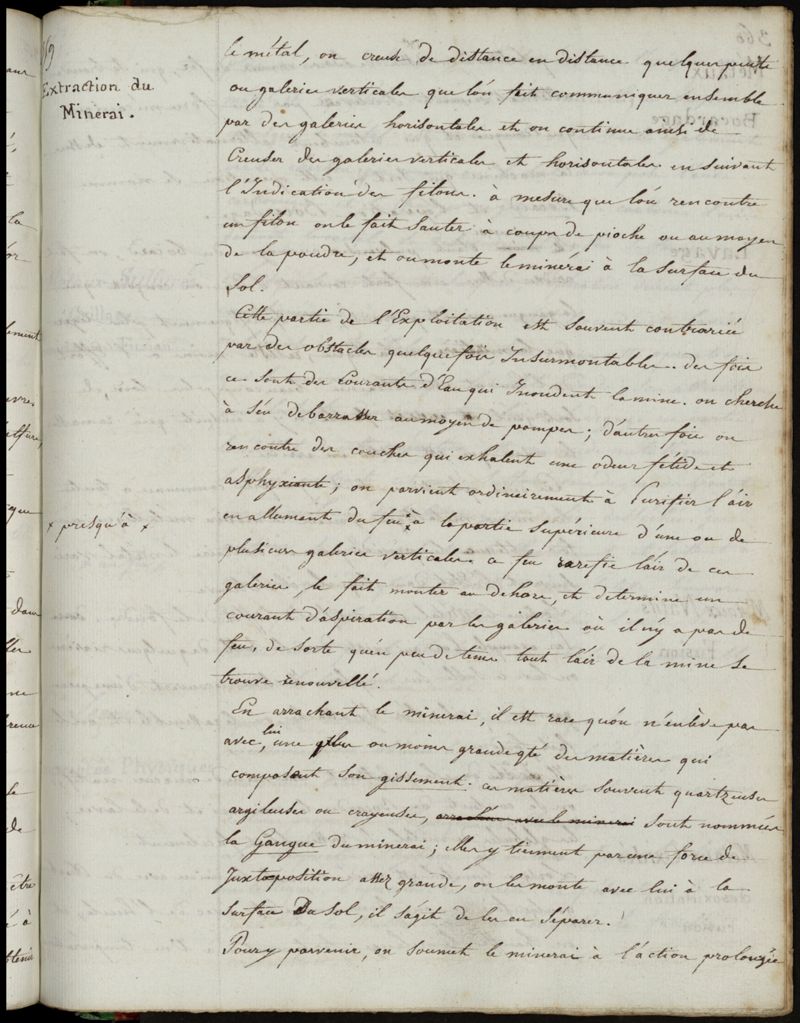 Extraction du
Minerai.
le métal, on creuse de distance en distance quelques puits
ou galeries verticales que l'on fait communiquer ensemble
par des galeries horisontales et on continue ainsi de
Creuser des galeries verticales et horisontales en suivant
l'Indication des filons. à mesure que l'on rencontre
un filon on le fait sauter à coups de pioche ou au moyen
de la poudre, et on monte le minérai à la surface du
sol.
Cette partie de l'Exploitation est souvent contrariée
par des obstacles quelquefois Insurmontables. des fois
ce sont des Courants d'Eau qui Inondent la mine. on cherche
à s'en debarrasser au moyen de pompes; d'autres fois on
rencontre des couches qui exhalent une odeur fétide et
asphyxiante; on parvient ordinairement à Purifier l'air
× presqu'à ×
en allumant du feu × à la partie supérieure d'une ou de
plusieurs galeries verticales. ce feu rarefie l'air de ces
galeries, le fait monter au dehors, et determine un
courant d'aspiration par les galeries où il n'y a pas de
feu, de sorte qu'en peu de tems tout l'air de la mine se
trouve renouvellé.
En arrachant le minerai, il est rare qu'on n'enlève pas
avec lui une plus ou moins grande qté des matières qui
composent son gissement. ces matières souvent quartzeuses
argileuses ou crayeuses, arrachées avec le minerai sont nommées
la Gangue du minerai; elles y tiennent par une force de
Juxtaposition assez grande, on les monte avec lui à la
surface Du sol, il s'agit de les en séparer.
Pour y parvenir, on soumet le minerai à l'action prolongée